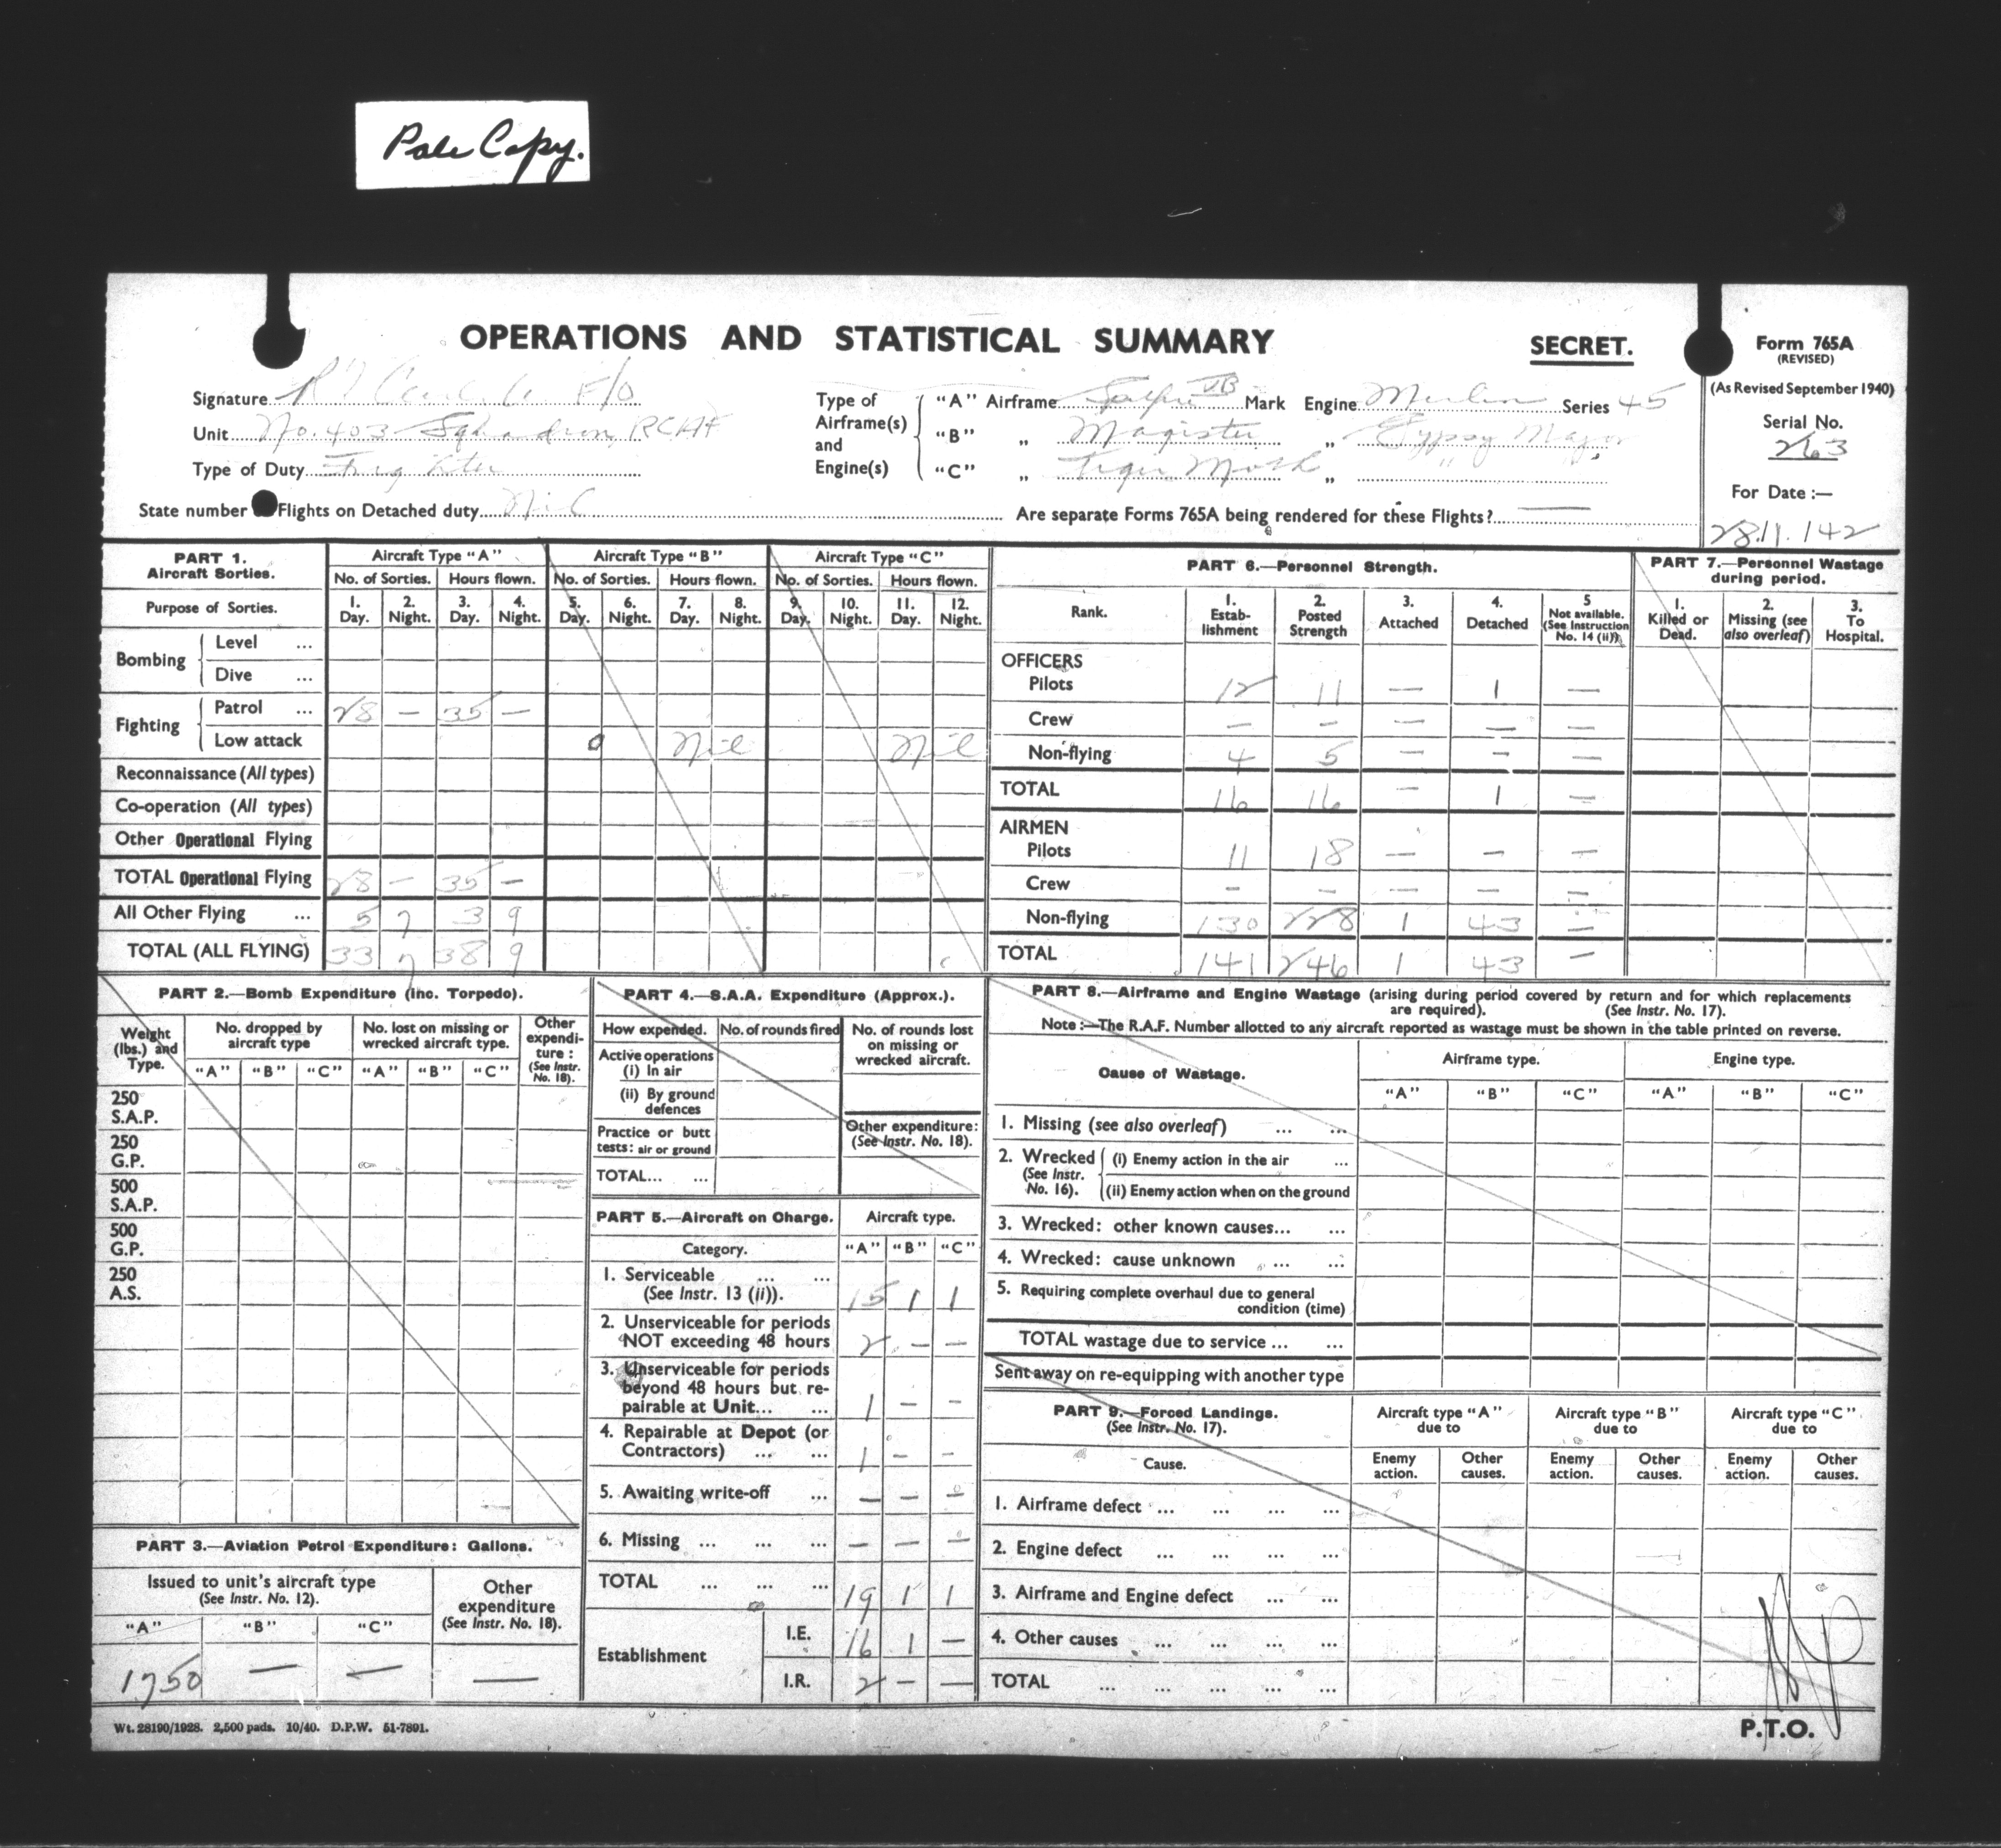 Pale Copy.
OPERATIONS AND STATISTICAL SUMMARY
SECRET.
Form 765A
(REVISED)
(As Revised September 1940)
Serial No.
263
For Date :—
28.11.142
Signature F/O
Unit No. 403 Squadron, RCAF
Type of Duty Fighter
State number Flights on Detached duty Nil
Are separate Forms 765A being rendered for these Flights? —
Type of Airframe(s) and Engine(s)
"A" Airframe Spitfire VB Mark Engine Merlin Series 45
"B" „ Magister „ Gypsy Major
"C" „ Tiger Moth „ " "
PART 1.
Aircraft Sorties.
Aircraft Type "A" Aircraft Type "B" Aircraft Type "C"
No. of Sorties. Hours flown. No. of Sorties. Hours flown. No. of Sorties. Hours flown.
Purpose of Sorties.
1. Day. 2. Night. 3. Day. 4. Night. 5. Day. 6. Night. 7. Day. 8. Night. 9. Day. 10. Night. 11. Day. 12. Night.
Bombing
Level ...
Dive ...
Fighting
Patrol ... 28 — 35 —
Low attack Nil Nil
Reconnaissance (All types)
Co-operation (All types)
Other Operational Flying
TOTAL Operational Flying 28 — 35 —
All Other Flying ... 5 7 3 9
TOTAL (ALL FLYING) 33 7 38 9
PART 6.—Personnel Strength.
Rank. 1. Estab-lishment 2. Posted Strength 3. Attached 4. Detached 5 Not available. (See Instruction No. 14 (ii))
OFFICERS
Pilots 12 11 — 1 —
Crew — — — — —
Non-flying 4 5 — — —
TOTAL 16 16 — 1 —
AIRMEN
Pilots 11 18 — — —
Crew — — — — —
Non-flying 130 228 1 43 —
TOTAL 141 246 1 43 —
PART 7.—Personnel Wastage
during period.
1. Killed or Dead. 2. Missing (see also overleaf) 3. To Hospital.
PART 2.—Bomb Expenditure (inc. Torpedo).
Weight (lbs.) and Type.
No. dropped by aircraft type
No. lost on missing or wrecked aircraft type.
Other expendi-ture : (See Instr. No. 18).
"A" "B" "C" "A" "B" "C"
250 S.A.P.
250 G.P.
500 S.A.P.
500 G.P.
250 A.S.
PART 3.—Aviation Petrol Expenditure: Gallons.
Issued to unit's aircraft type
(See Instr. No. 12).
Other expenditure
(See Instr. No. 18).
"A" "B" "C"
1750 — — —
PART 4.—S.A.A. Expenditure (Approx.).
How expended. No. of rounds fired No. of rounds lost on missing or wrecked aircraft.
Active operations
(i) In air
(ii) By ground defences
Practice or butt tests: air or ground
Other expenditure:
(See Instr. No. 18).
TOTAL... ...
PART 5.—Aircraft on Charge. Aircraft type.
Category. "A" "B" "C"
1. Serviceable ... ...
(See Instr. 13 (ii)). 15 1 1
2. Unserviceable for periods
NOT exceeding 48 hours 2 — —
3. Unserviceable for periods
beyond 48 hours but re-
pairable at Unit... ... 1 — —
4. Repairable at Depot (or
Contractors) ... ... 1 — —
5. Awaiting write-off ... — — —
6. Missing ... ... ... — — —
TOTAL ... ... ... 19 1 1
Establishment
I.E. 16 1 —
I.R. 2 — —
PART 8.—Airframe and Engine Wastage (arising during period covered by return and for which replacements
are required). (See Instr. No. 17).
Note :—The R.A.F. Number allotted to any aircraft reported as wastage must be shown in the table printed on reverse.
Cause of Wastage. Airframe type. Engine type.
"A" "B" "C" "A" "B" "C"
1. Missing (see also overleaf) ... ...
2. Wrecked (See Instr. No. 16).
(i) Enemy action in the air ...
(ii) Enemy action when on the ground
3. Wrecked: other known causes... ...
4. Wrecked: cause unknown ... ...
5. Requiring complete overhaul due to general
condition (time)
TOTAL wastage due to service ... ...
Sent away on re-equipping with another type
PART 9.—Forced Landings.
(See Instr. No. 17).
Aircraft type "A" due to Aircraft type "B" due to Aircraft type "C" due to
Cause. Enemy action. Other causes. Enemy action. Other causes. Enemy action. Other causes.
1. Airframe defect ... ... ... ...
2. Engine defect ... ... ... ...
3. Airframe and Engine defect ... ...
4. Other causes ... ... ... ...
TOTAL ... ... ... ... ...
Wt. 28190/1928. 2,500 pads. 10/40. D.P.W. 51-7891.
P.T.O.